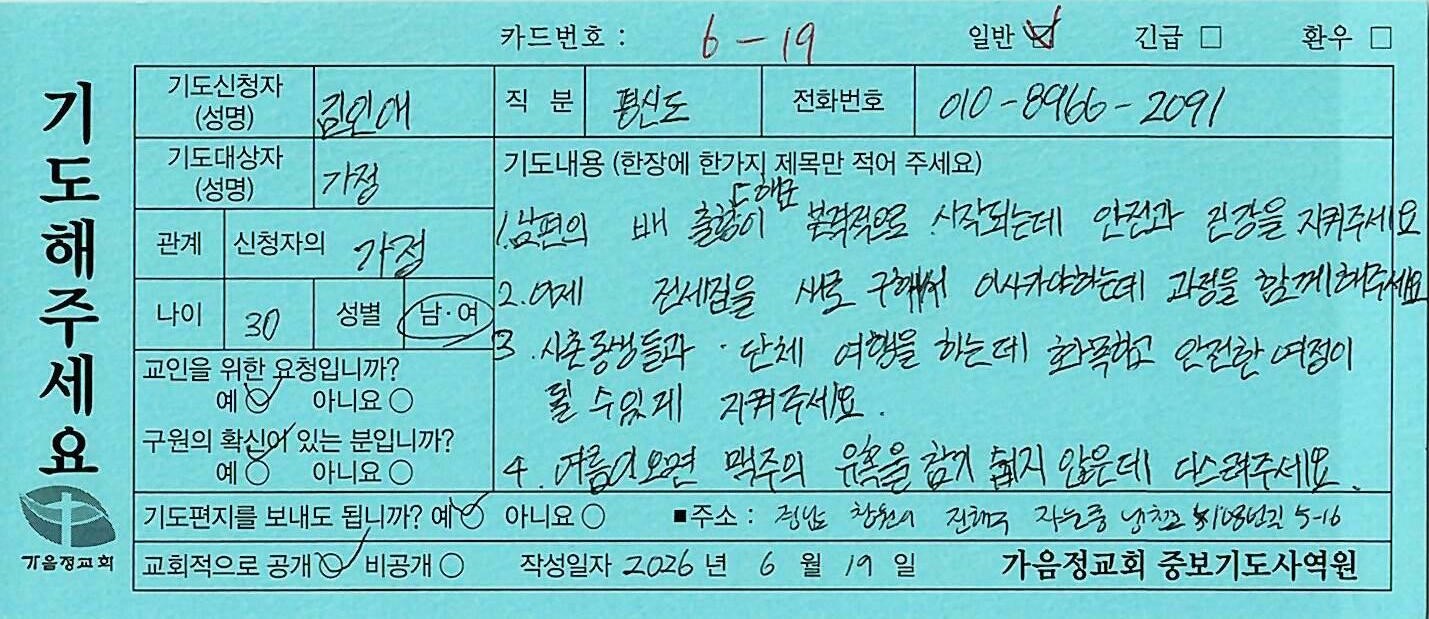 카드번호 : 6 - 19 일반 ☑ 긴급 □ 환우 □
기도해주세요
기도신청자 (성명) 김인애 직 분 평신도 전화번호 010-8966-2091
기도대상자 (성명) 가정
관계 신청자의 가정
나이 30 성별 남·여
교인을 위한 요청입니까?
예 ○ 아니요 ○
구원의 확신이 있는 분입니까?
예 ○ 아니요 ○
기도내용 (한장에 한가지 제목만 적어 주세요)
1. 남편의 배 출항이 본격적으로 시작되는데 안전과 건강을 지켜주세요
2. 어제 전세집을 새로 구해서 이사가야하는데 과정을 함께해주세요
3. 사촌동생들과 단체 여행을 하는데 화목하고 안전한 여정이
될 수 있게 지켜주세요.
4. 여름이오면 맥주의 유혹을 참기 쉽지 않은데 다스려주세요.
기도편지를 보내도 됩니까? 예 ○ 아니요 ○ ■주소 : 경남 창원시 진해구 자은동 냉천로108번길 5-16
교회적으로 공개 ○ 비공개 ○ 작성일자 2026 년 6 월 19 일 가음정교회 중보기도사역원
가음정교회